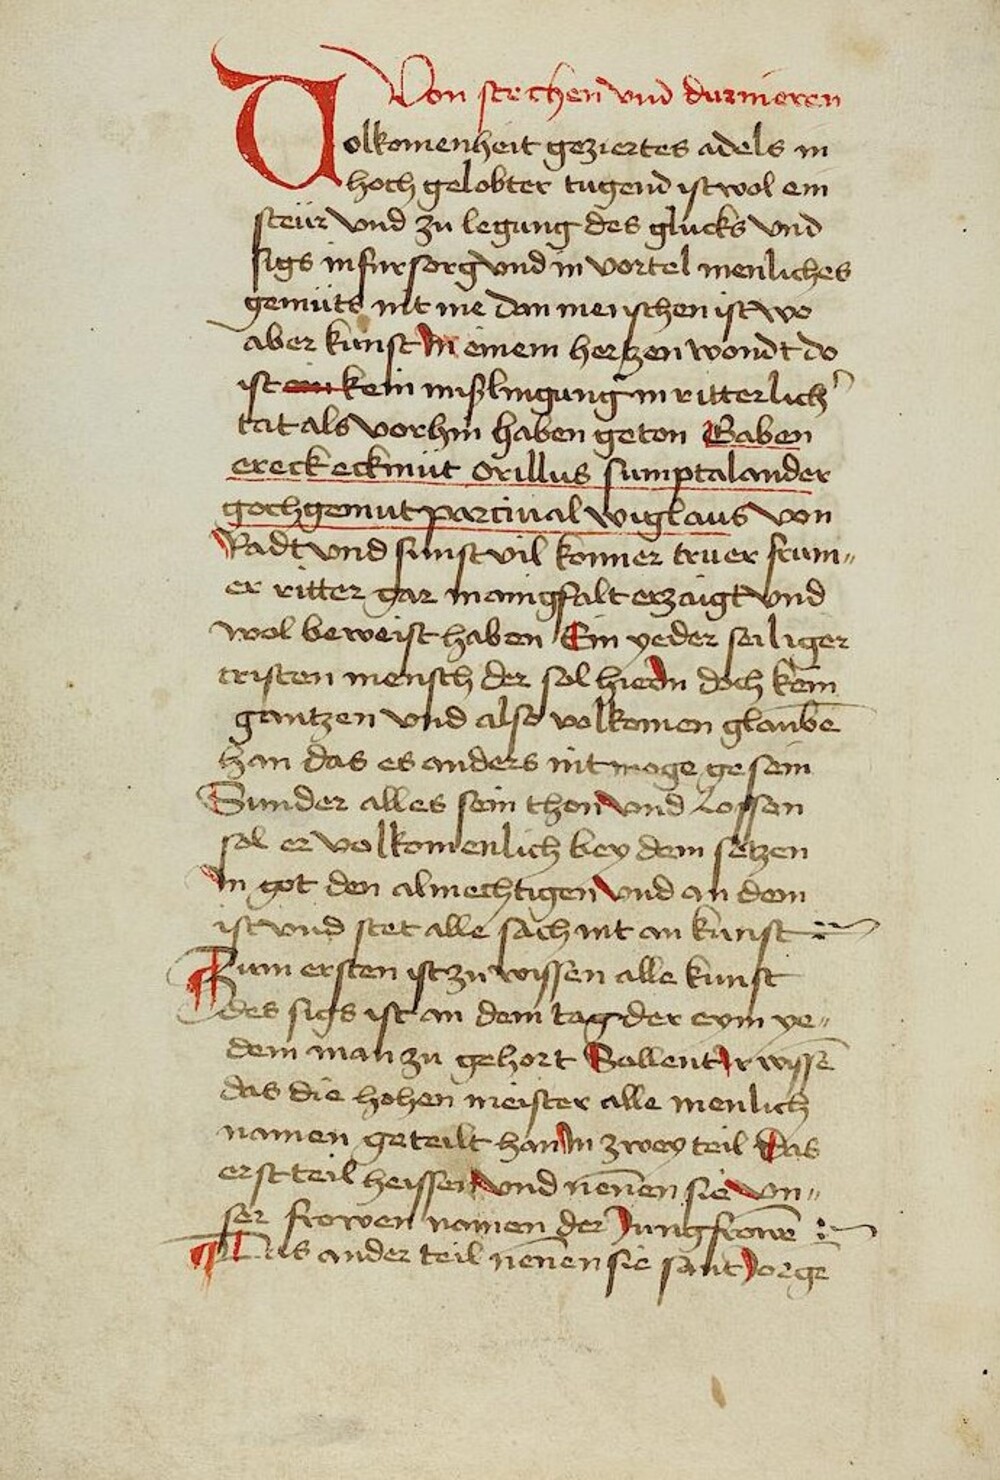 Von stechen vnd durnieren
Volkomenheit geziertes adels in
hoch gelobter tugend ist wol ein
steür vnd zu legung des glucks vnd
sigs in fursorg vnd in vortel menliches
gemüts nit me dan menschen ist wo
aber kunst In einem hertzen wondt do
ist ein kein mißlingung in ritterlich
tat als vorhin haben geton Gaben
ereck eckmüt orillus sumptalander
gochgemut parciual wiglaus von
Radt vnd sunst vil konner truer frum„
er ritter gar manigfalt erzaigt vnd
wol beweist haben Ein yeder seiliger
cristen mensch der sol hieran doch kein
gantzen vnd also volkomen glaubē
han das es anders nit moge gesein
Sunder alles sein thon vnd Lossen
sol er volkomenlich bey dem setzen
In got den almechtigen vnd an dem
ist vnd stet alle sach nit an kunst
Zum ersten ist zu wissen alle kunst
des sigs ist an dem tag der eym ye„
dem man zu gehort Sollent Ir wissē
das die hohen meister alle menlich
namen geteilt han In zwey teil Das
erst teil heissen vnd nēnen sie vn„
ser frowen namen der Jungfrowē
Das ander teil nēnen sie sant Jorgē